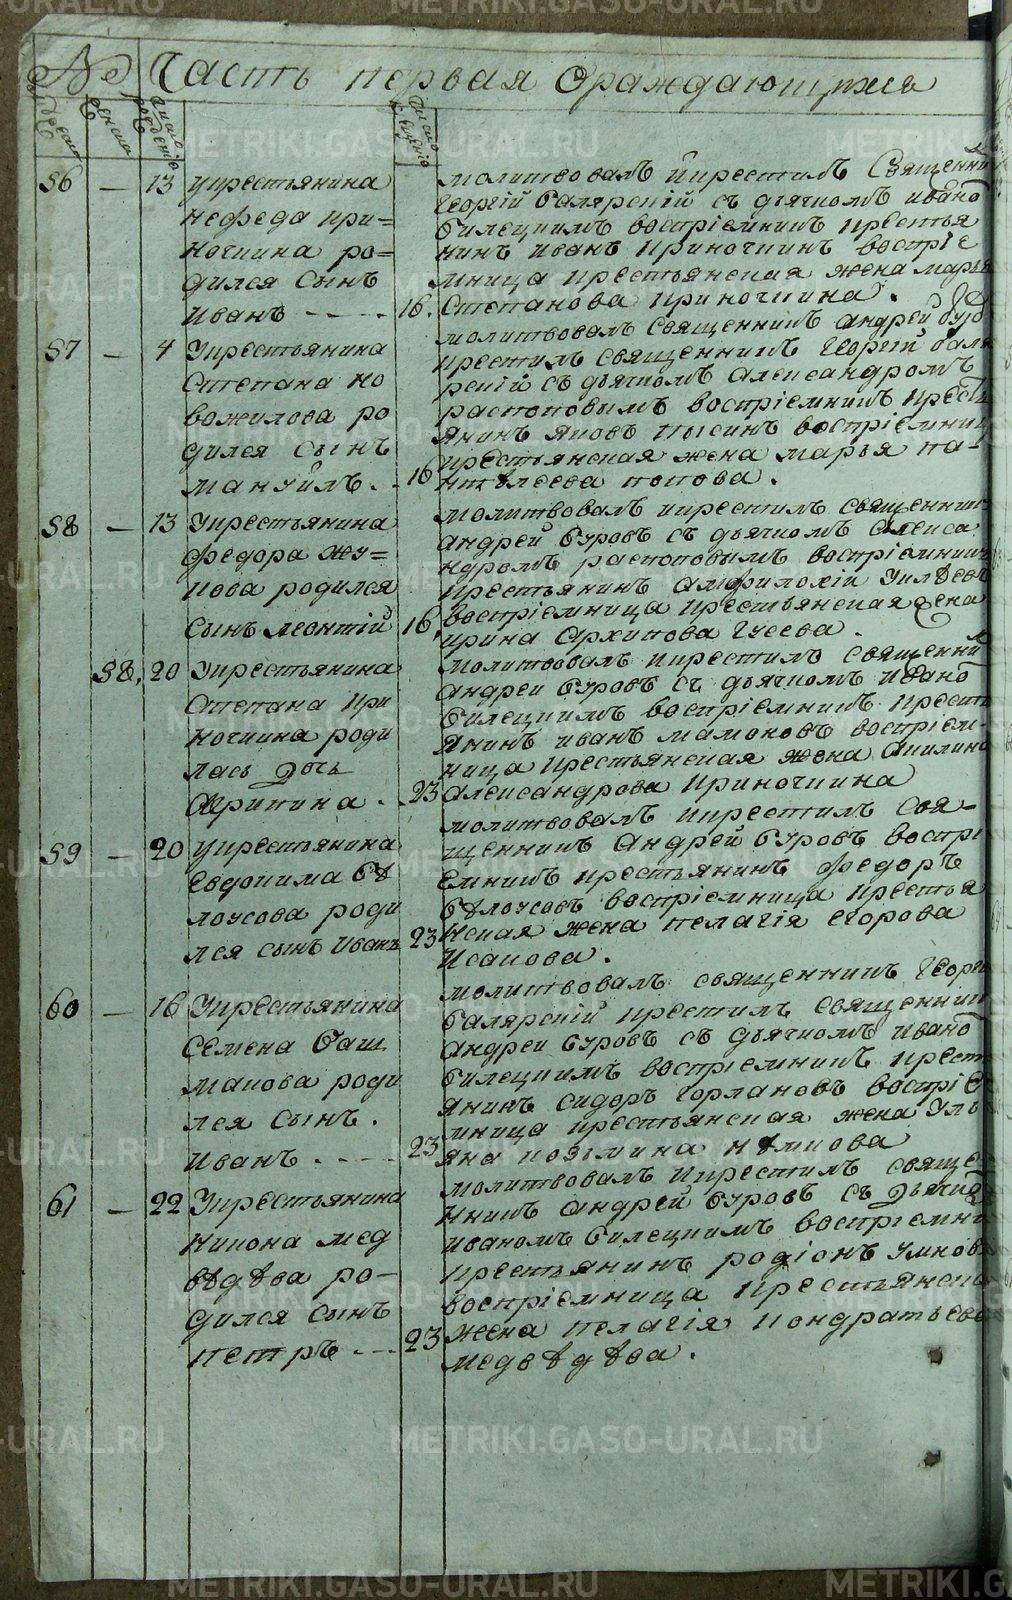 № Часть первая Ораждающихсъ
мужеска
женска
число рождения
число крещения
56 — 13 укрестьянина
нефеда кри=
ночкина ро=
дился сынъ
иванъ - - - - 16.
молитвовалъ икрестилъ Священник
Георгий Балярский съ дьячкомъ ивано
билецкимъ воспріемникъ крестья
нинъ иванъ криночкинъ воспріе
мница крестьянская жена марья
Степанова криночкина.
57 — 4 Укрестьянина
Степана но
вожилова ро
дился сынъ
мануилъ. - 16
молитвовалъ Священникъ андрей бур
крестилъ священникъ Георгий баля
рский съ дьячкомъ Александромъ
распоповымъ воспріемникъ кресть
янинъ яковъ пысинъ воспріемниц
крестьянская жена марья па-
нтѣлеева попова.
58 — 13 Укрестьянина
федора жу=
кова родился
сынъ леонтий 16,
молитвовалъ икрестилъ священник
андрей буровъ съ дьячкомъ Алекса
ндромъ распоповымъ воспріемник
крестьянинъ Амфилохий Гилѣевъ
воспріемница крестьянская жена
ирина Архипова Гусева.
58, 20 Укрестьянина
Степана кри
ночкина роди
лась дочь
Агрипина. - 23
молитвовалъ икрестилъ священни
андрей буровъ съ дьячкомъ ивано
билецкимъ воспріемникъ кресть
янинъ иванъ мамоновъ воспріем-
ница крестьянская жена Акилина
Александрова криночкина
59 — 20 Укрестьянина
Евдокима бѣ
лоусова роди
лся сынъ Иванъ 23
молитвовалъ икрестилъ свя-
щенникъ Андрей буровъ воспрі
емникъ крестьянинъ федоръ
бѣлоусовъ воспріемница крестья
нская жена пелагія егорова
Исакова.
60 — 16 Укрестьянина
Семена баш
макова роди
лся сынъ.
иванъ. - - - 23
молитвовалъ священникъ Георги
балярский крестилъ священник
Андрей буровъ съ дьячкомъ ивано
билецкимъ воспріемникъ кресть
янинъ сидоръ Горлановъ воспріе
мница крестьянская жена Уль
яна козмина нѣмкова
61 — 22 Укрестьянина
Никона мед
вѣдѣва ро-
дился сынъ
петръ - - - 23
молитвовалъ икрестилъ священ
никъ андрей буровъ съ дьячко
иваномъ билецкимъ воспріемни
крестьянинъ родіонъ Умнов
воспріемница крестьянска
жена пелагія кондратьева
медвѣдѣва.
METRIKI.GASO-URAL.RU